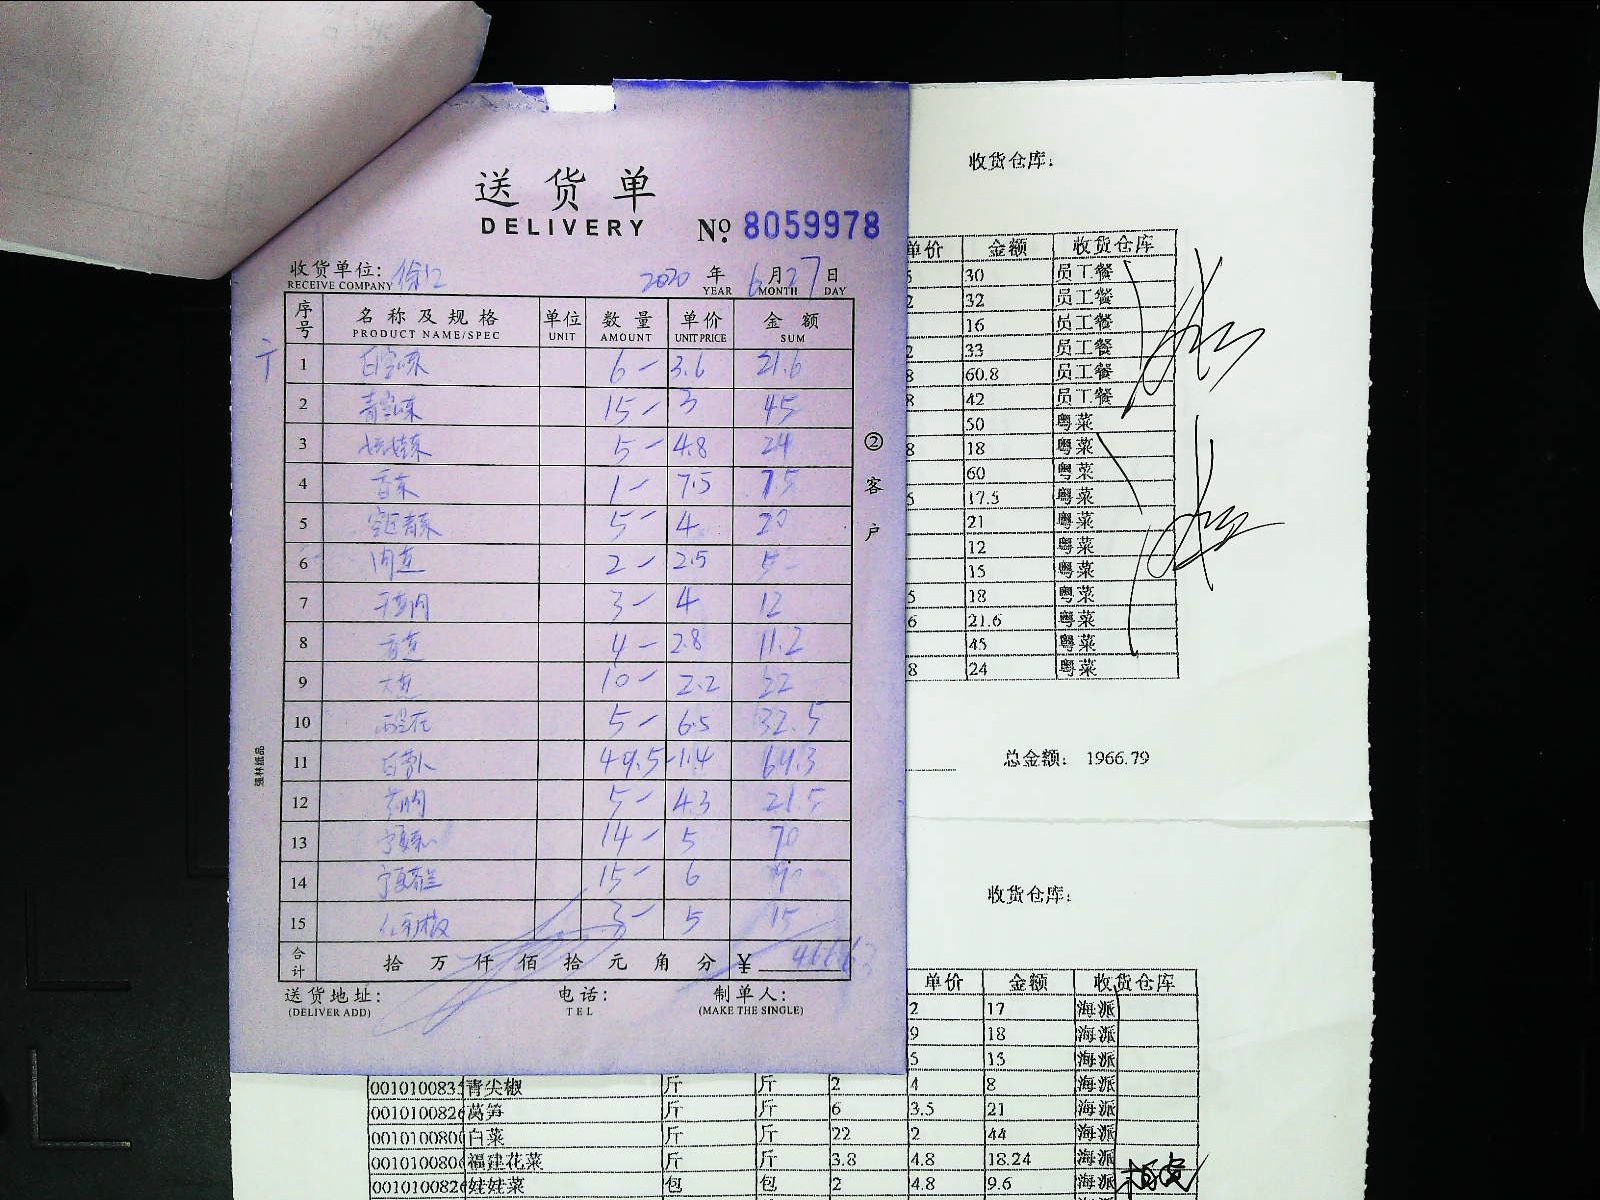 送货单
DELIVERY
No. 8059978
收货单位: 徐汇 2020 年 6 月 27 日
RECEIVE COMPANY YEAR MONTH DAY
序号 名称及规格 单位 数量 单价 金额
PRODUCT NAME/SPEC UNIT AMOUNT UNIT PRICE SUM
1 6 - 3.6 21.6
2 15 - 3 45
3 娃娃菜 5 - 4.8 24
4 香菜 1 - 7.5 7.5
5 5 - 4 20
6 2 - 2.5 5 -
7 3 - 4 12
8 4 - 2.8 11.2
9 10 - 2.2 22
10 西兰花 5 - 6.5 32.5
11 白萝卜 49.5 - 1.4 69.3
12 5 - 4.3 21.5
13 宁夏菜心 14 - 5 70
14 宁夏芥兰 15 - 6 90
15 3 - 5 15
合计 拾 万 仟 佰 拾 元 角 分 ¥
送货地址: 电话: 制单人:
(DELIVER ADD) TEL (MAKE THE SINGLE)
② 客户
强林纸品
收货仓库:
单价 金额 收货仓库
5 30 员工餐
2 32 员工餐
16 员工餐
2 33 员工餐
8 60.8 员工餐
8 42 员工餐
50 粤菜
8 18 粤菜
60 粤菜
5 17.5 粤菜
21 粤菜
12 粤菜
15 粤菜
5 18 粤菜
6 21.6 粤菜
45 粤菜
8 24 粤菜
总金额: 1966.79
收货仓库:
单价 金额 收货仓库
2 17 海派
9 18 海派
5 15 海派
001010083 青尖椒 斤 斤 2 4 8 海派
001010082 莴笋 斤 斤 6 3.5 21 海派
001010080 白菜 斤 斤 22 2 44 海派
001010080 福建花菜 斤 斤 3.8 4.8 18.24 海派
001010082 娃娃菜 包 包 2 4.8 9.6 海派